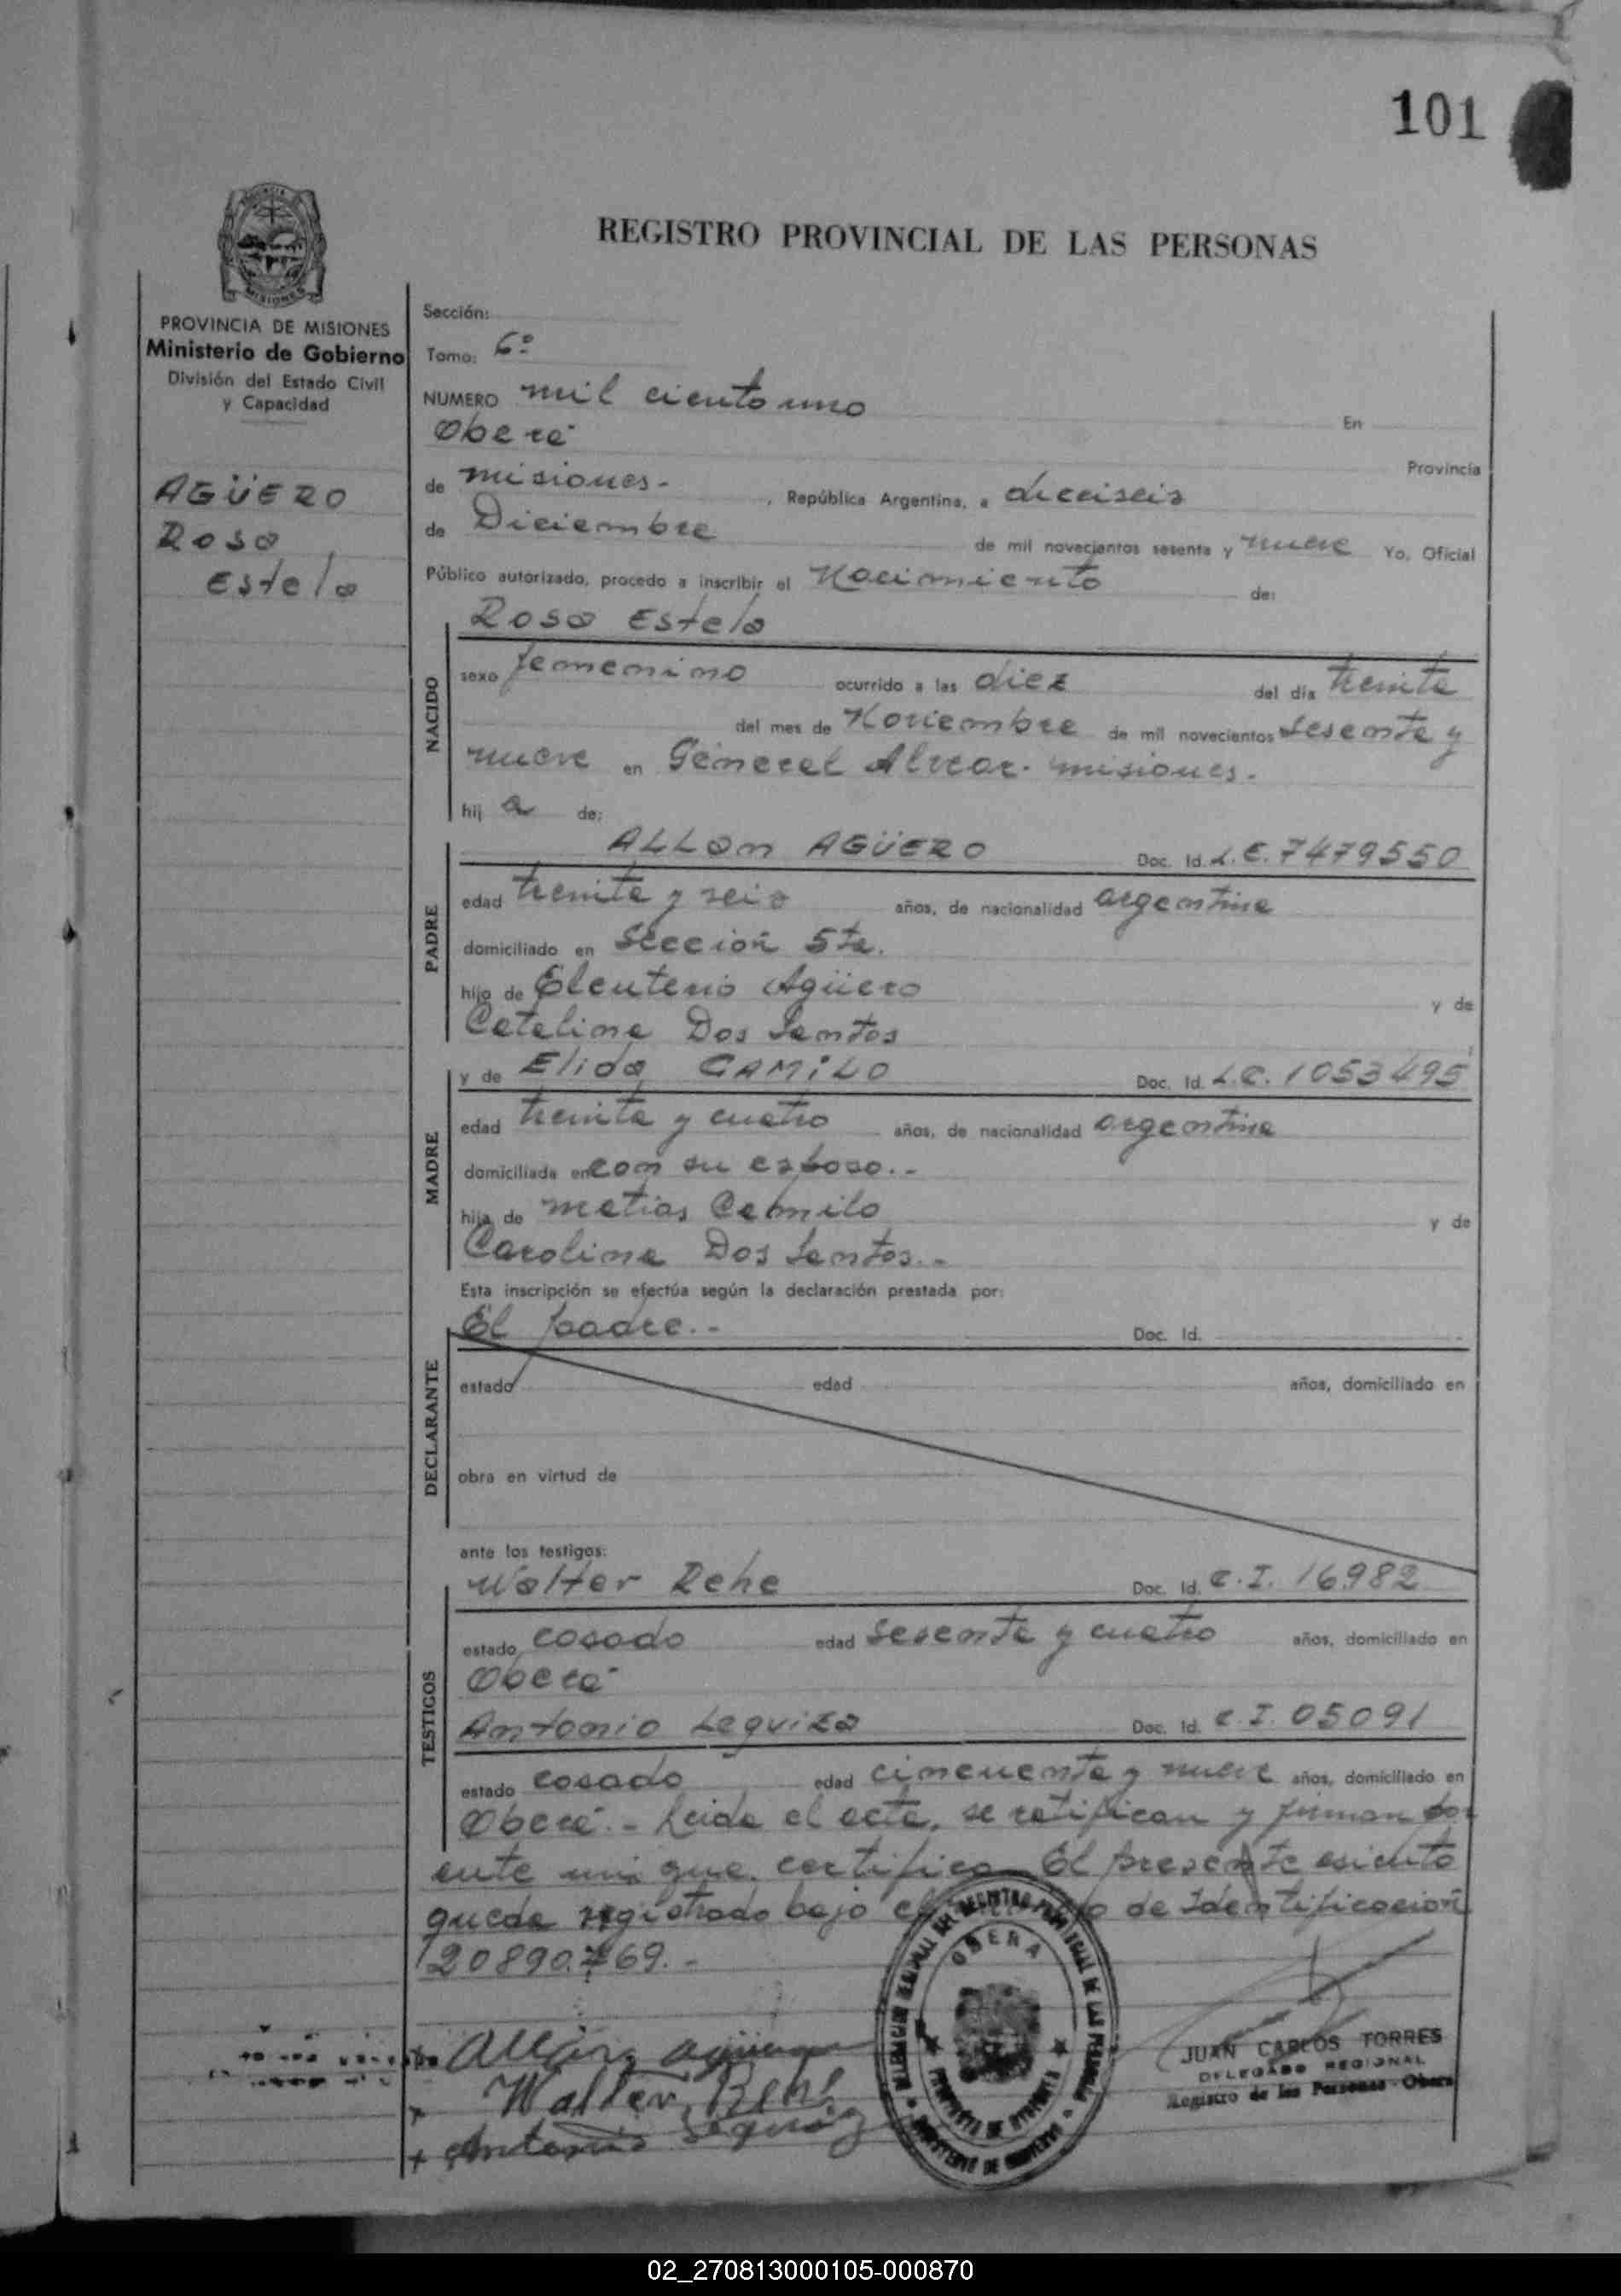 101
REGISTRO PROVINCIAL DE LAS PERSONAS
MISIONES
PROVINCIA DE MISIONES
Ministerio de Gobierno
División del Estado Civil
y Capacidad
AGÜERO
Rosa
Estela
Sección:
Tomo: 6º
NUMERO mil ciento uno En
Oberá Provincia
de misiones.- , República Argentina, a dieciseis
de Diciembre de mil novecientos sesenta y nueve Yo, Oficial
Público autorizado, procedo a inscribir el Nacimiento de:
Rosa Estela
NACIDO
sexo femenino ocurrido a las diez del día treinta
del mes de Noviembre de mil novecientos sesenta y
nueve en General Alvear. misiones.-
hij a de:
PADRE
ALLAN AGÜERO Doc. Id. L.E. 7479550
edad treinta y seis años, de nacionalidad argentina
domiciliado en Sección 5ta.
hijo de Eleuterio Agüero y de
Catalina Dos Santos
MADRE
y de Elida CAMILO Doc. Id. L.C. 1053495
edad treinta y cuatro años, de nacionalidad argentina
domiciliada en con su esposo.-
hija de Matias Camilo y de
Carolina Dos Santos.-
Esta inscripción se efectúa según la declaración prestada por:
DECLARANTE
El padre.- Doc. Id.
estado edad años, domiciliado en
obra en virtud de
ante los testigos:
TESTIGOS
Walter Rehe Doc. Id. C.I. 16982
estado casado edad sesenta y cuatro años, domiciliado en
Oberá
Antonio Leguiza Doc. Id. C.I. 05091
estado casado edad cincuenta y nueve años, domiciliado en
Oberá.- Leida el acta, se ratifican y firman por
ante mi que certifico El presente asiento
queda registrado bajo el de Identificación
20890.769.-
OBERA
JUAN CARLOS TORRES
DELEGADO REGIONAL
Registro de las Personas - Obera
02_270813000105-000870